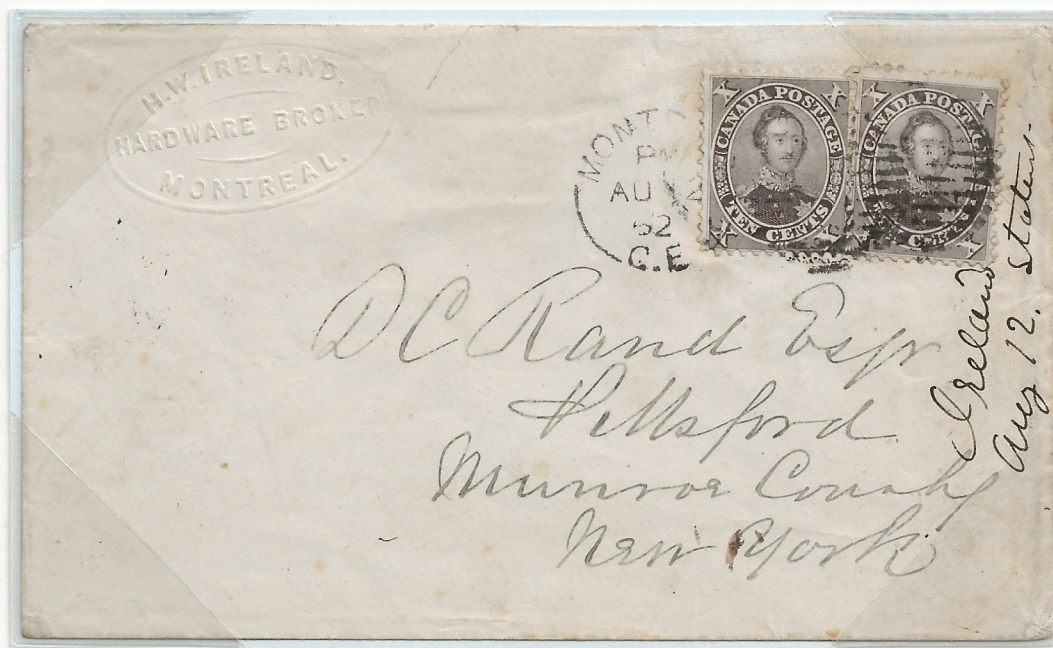 H.W. IRELAND.
HARDWARE BROKER
MONTREAL.
MONT
PM
AU 12
62
C.E
X X
CANADA POSTAGE
TEN CENTS
X X
X X
CANADA POSTAGE
TEN CENTS
X
D C Rand Esqr
Pittsford
Munroe County
New York
Ireland
Aug 12.